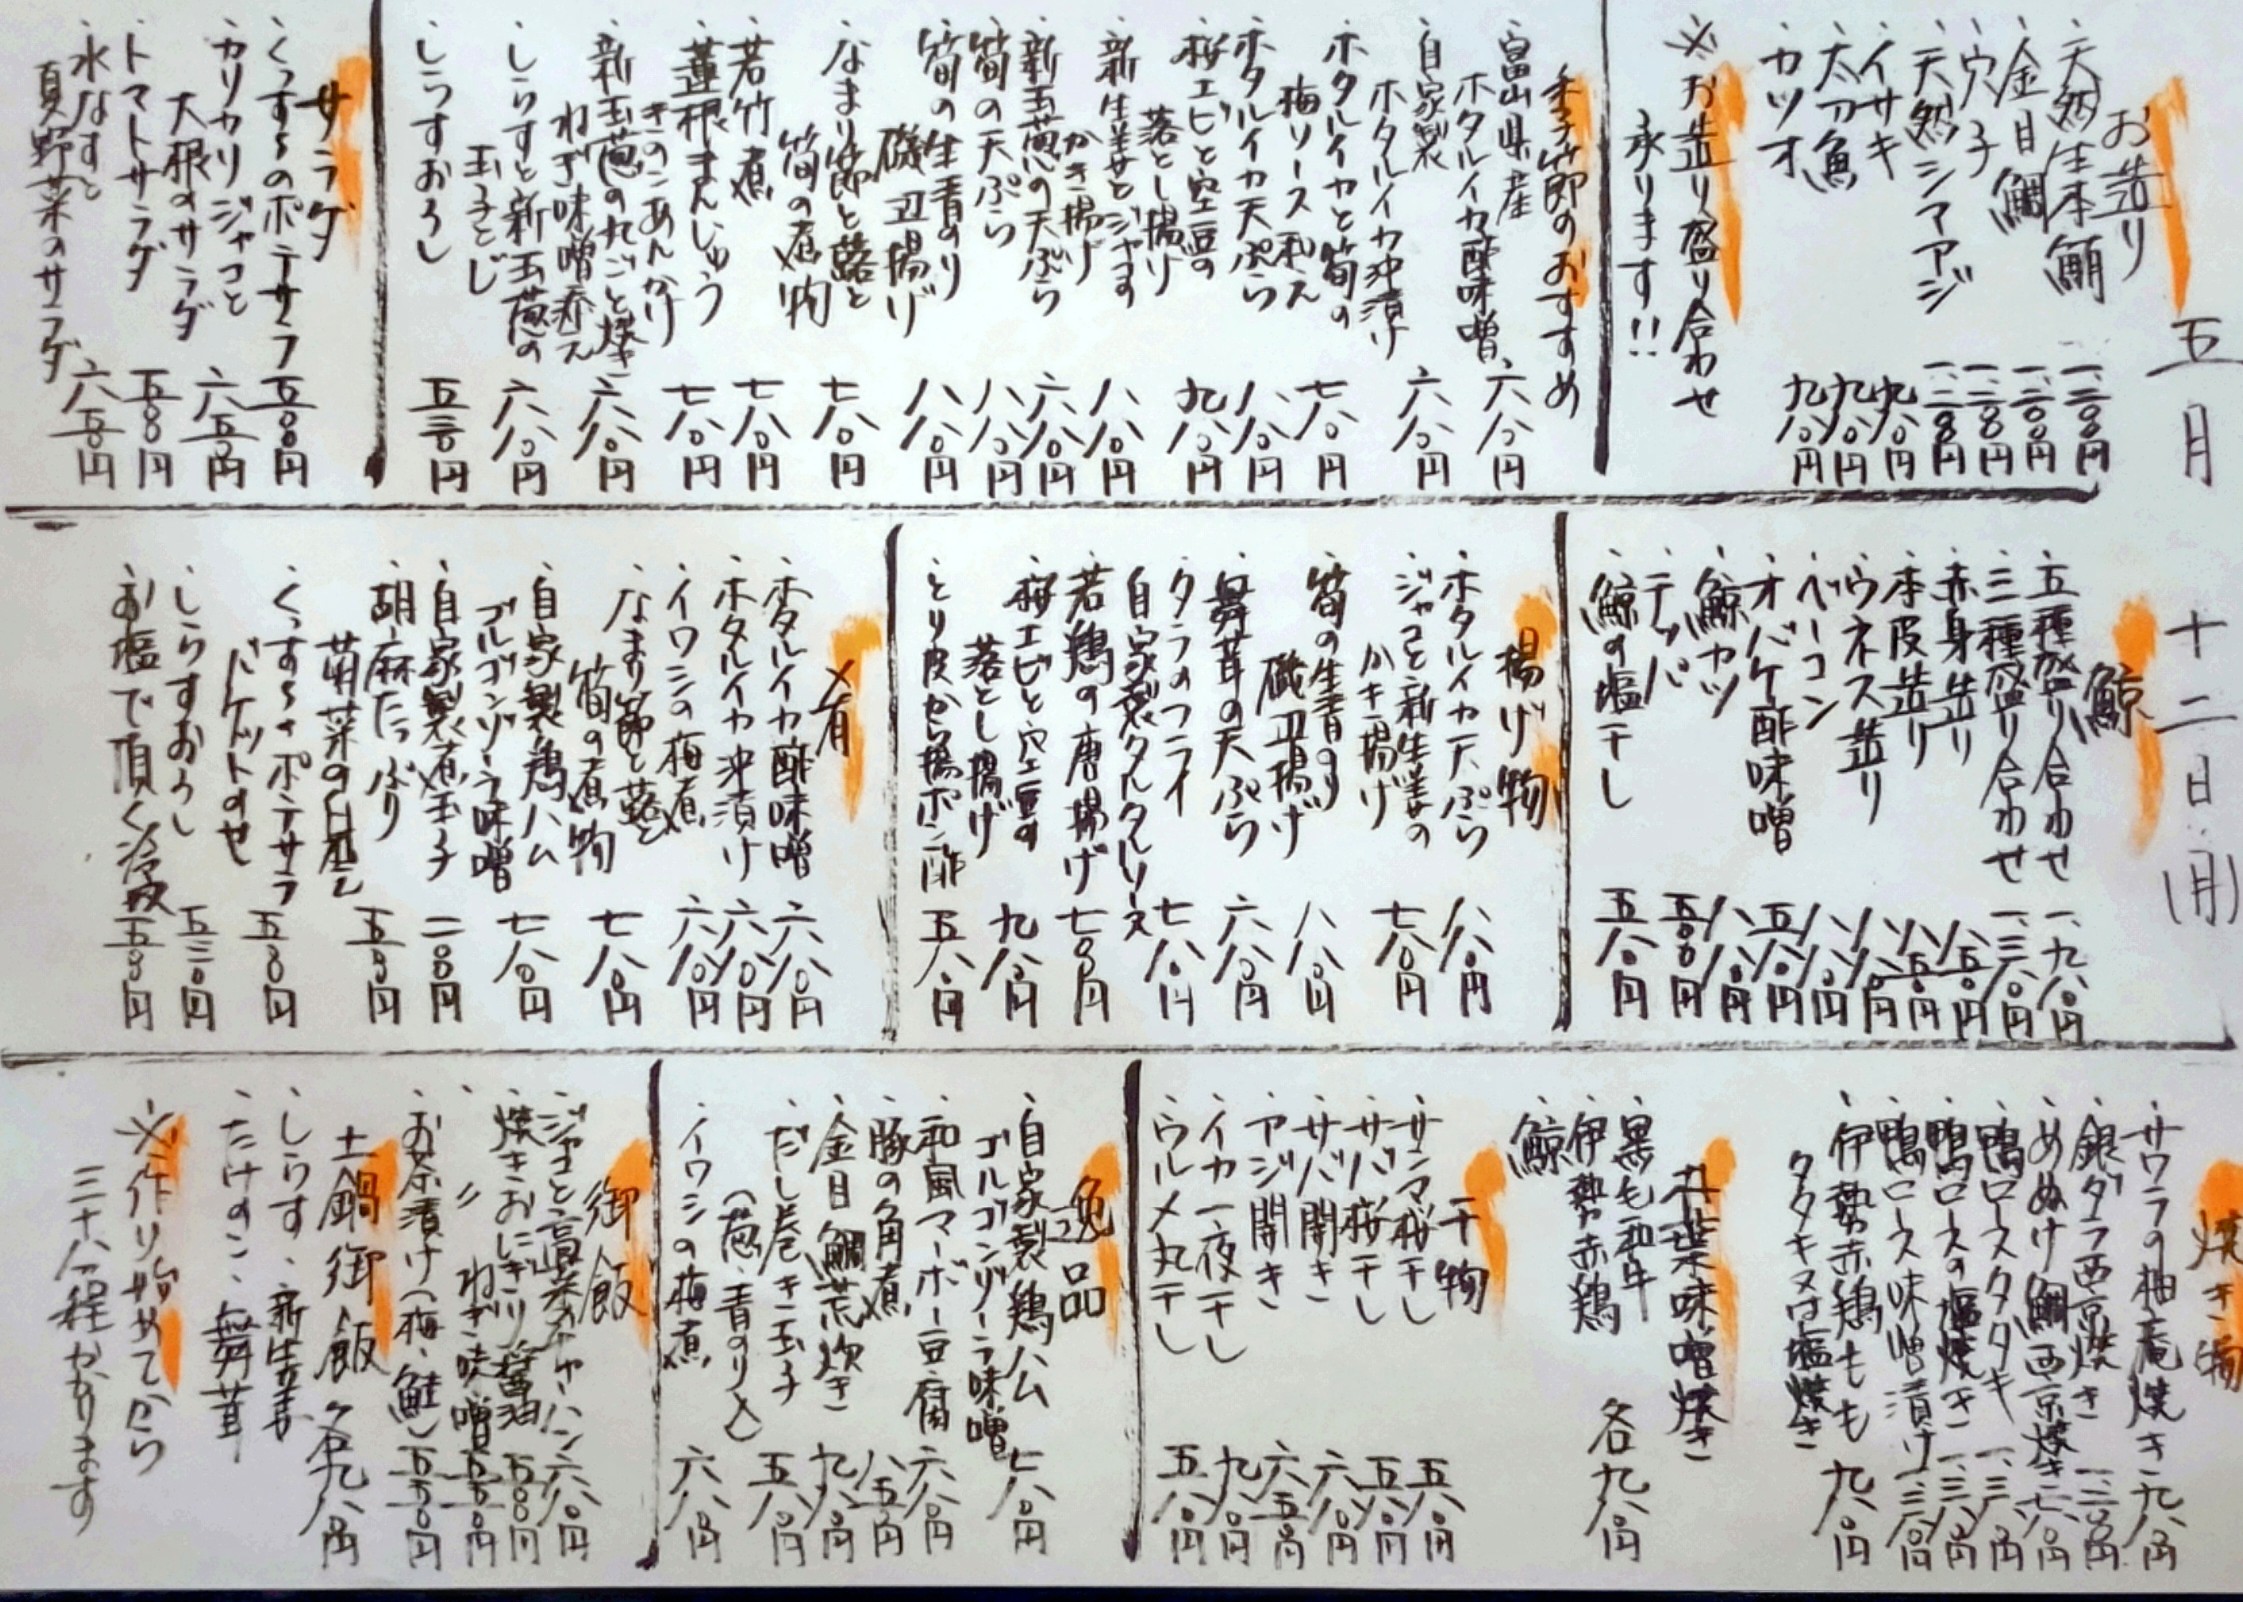 五月十二日(月)
お造り
・天然生本鮪 一、二〇〇円
・金目鯛 一、二〇〇円
・穴子 一、二〇〇円
・天然シマアジ 一、二〇〇円
・イサキ 九八〇円
・太刀魚 九八〇円
・カツオ 九八〇円
※お造り盛り合わせ
承ります!!
季節のおすすめ
・富山県産
ホタルイカ酢味噌 六八〇円
・自家製
ホタルイカ沖漬け 六八〇円
・ホタルイカと筍の
梅ソース和え 七八〇円
・ホタルイカ天ぷら 八八〇円
・桜エビと空豆の
落とし揚げ 九八〇円
・新生姜とジャコの
かき揚げ 八八〇円
・新玉葱の天ぷら 六八〇円
・筍の天ぷら 八八〇円
・筍の生青のり
磯辺揚げ 八八〇円
・なまり節と蕗と
筍の煮物 七八〇円
・若竹煮 七八〇円
・蓮根まんじゅう
きのこあんかけ 七八〇円
・新玉葱の丸ごと焼き
ねぎ味噌添え 六八〇円
・しらすと新玉葱の
玉子とじ 六八〇円
・しらすおろし 五三〇円
サラダ
・くっすんのポテサラ 五〇〇円
・カリカリジャコと
大根のサラダ 六五〇円
・トマトサラダ 五〇〇円
・水なすと
夏野菜のサラダ 六五〇円
鯨
・五種盛り合わせ 一、九八〇円
・三種盛り合わせ 一、三八〇円
・赤身造り 八五〇円
・本皮造り 八五〇円
・ウネス造り 八八〇円
・ベーコン 八八〇円
・オバケ酢味噌 五八〇円
・鯨カツ 八八〇円
・テッパ 五〇〇円
・鯨の塩干し 五八〇円
揚げ物
・ホタルイカ天ぷら 八八〇円
・ジャコと新生姜の
かき揚げ 七八〇円
・筍の生青のり
磯辺揚げ 八八〇円
・舞茸の天ぷら 六八〇円
・タラのフライ
自家製タルタルソース 七八〇円
・若鶏の唐揚げ 七〇〇円
・桜エビと空豆の
落とし揚げ 九八〇円
・とり皮から揚ポン酢 五八〇円
肴
・ホタルイカ酢味噌 六八〇円
・ホタルイカ沖漬け 六八〇円
・イワシの梅煮 六八〇円
・なまり節と蕗と
筍の煮物 七八〇円
・自家製鶏ハム
ゴルゴンゾーラ味噌 七八〇円
・自家製煮玉子 二〇〇円
・胡麻たっぷり
菊菜の白和え 五五〇円
・くっすんポテサラ
バケットのせ 五五〇円
・しらすおろし 五三〇円
・お塩で頂く冷奴 五五〇円
焼き物
・サワラの柚庵焼き 九八〇円
・銀ダラ西京焼き 一、二〇〇円
・めぬけ鯛西京焼き
・鴨ロースタタキ 一、三八〇円
・鴨ロースの塩焼き 一、三八〇円
・鴨ロース味噌漬け 一、三八〇円
・伊勢赤鶏もも
タタキ又は塩焼き 九八〇円
朴葉味噌焼き
・黒毛和牛
・伊勢赤鶏
・鯨
各九八〇円
干物
・サンマ桜干し 五八〇円
・サバ桜干し 五八〇円
・サバ開き 六八〇円
・アジ開き 六五〇円
・イカ一夜干し 九八〇円
・ウルメ丸干し 五八〇円
逸品
・自家製鶏ハム
ゴルゴンゾーラ味噌 七八〇円
・和風マーボー豆腐 六八〇円
・豚の角煮 八五〇円
・金目鯛荒炊き 九八〇円
・だし巻き玉子
(葱、青のり入) 五八〇円
・イワシの梅煮 六八〇円
御飯
・ジャコと高菜チャーハン 六八〇円
・焼きおにぎり醤油 五〇〇円
・〃 ねぎ味噌 五五〇円
・お茶漬け(梅、鮭) 五五〇円
土鍋御飯 各九八〇円
・しらす、新生姜
・たけのこ、舞茸
※作り始めてから
三十分程かかります